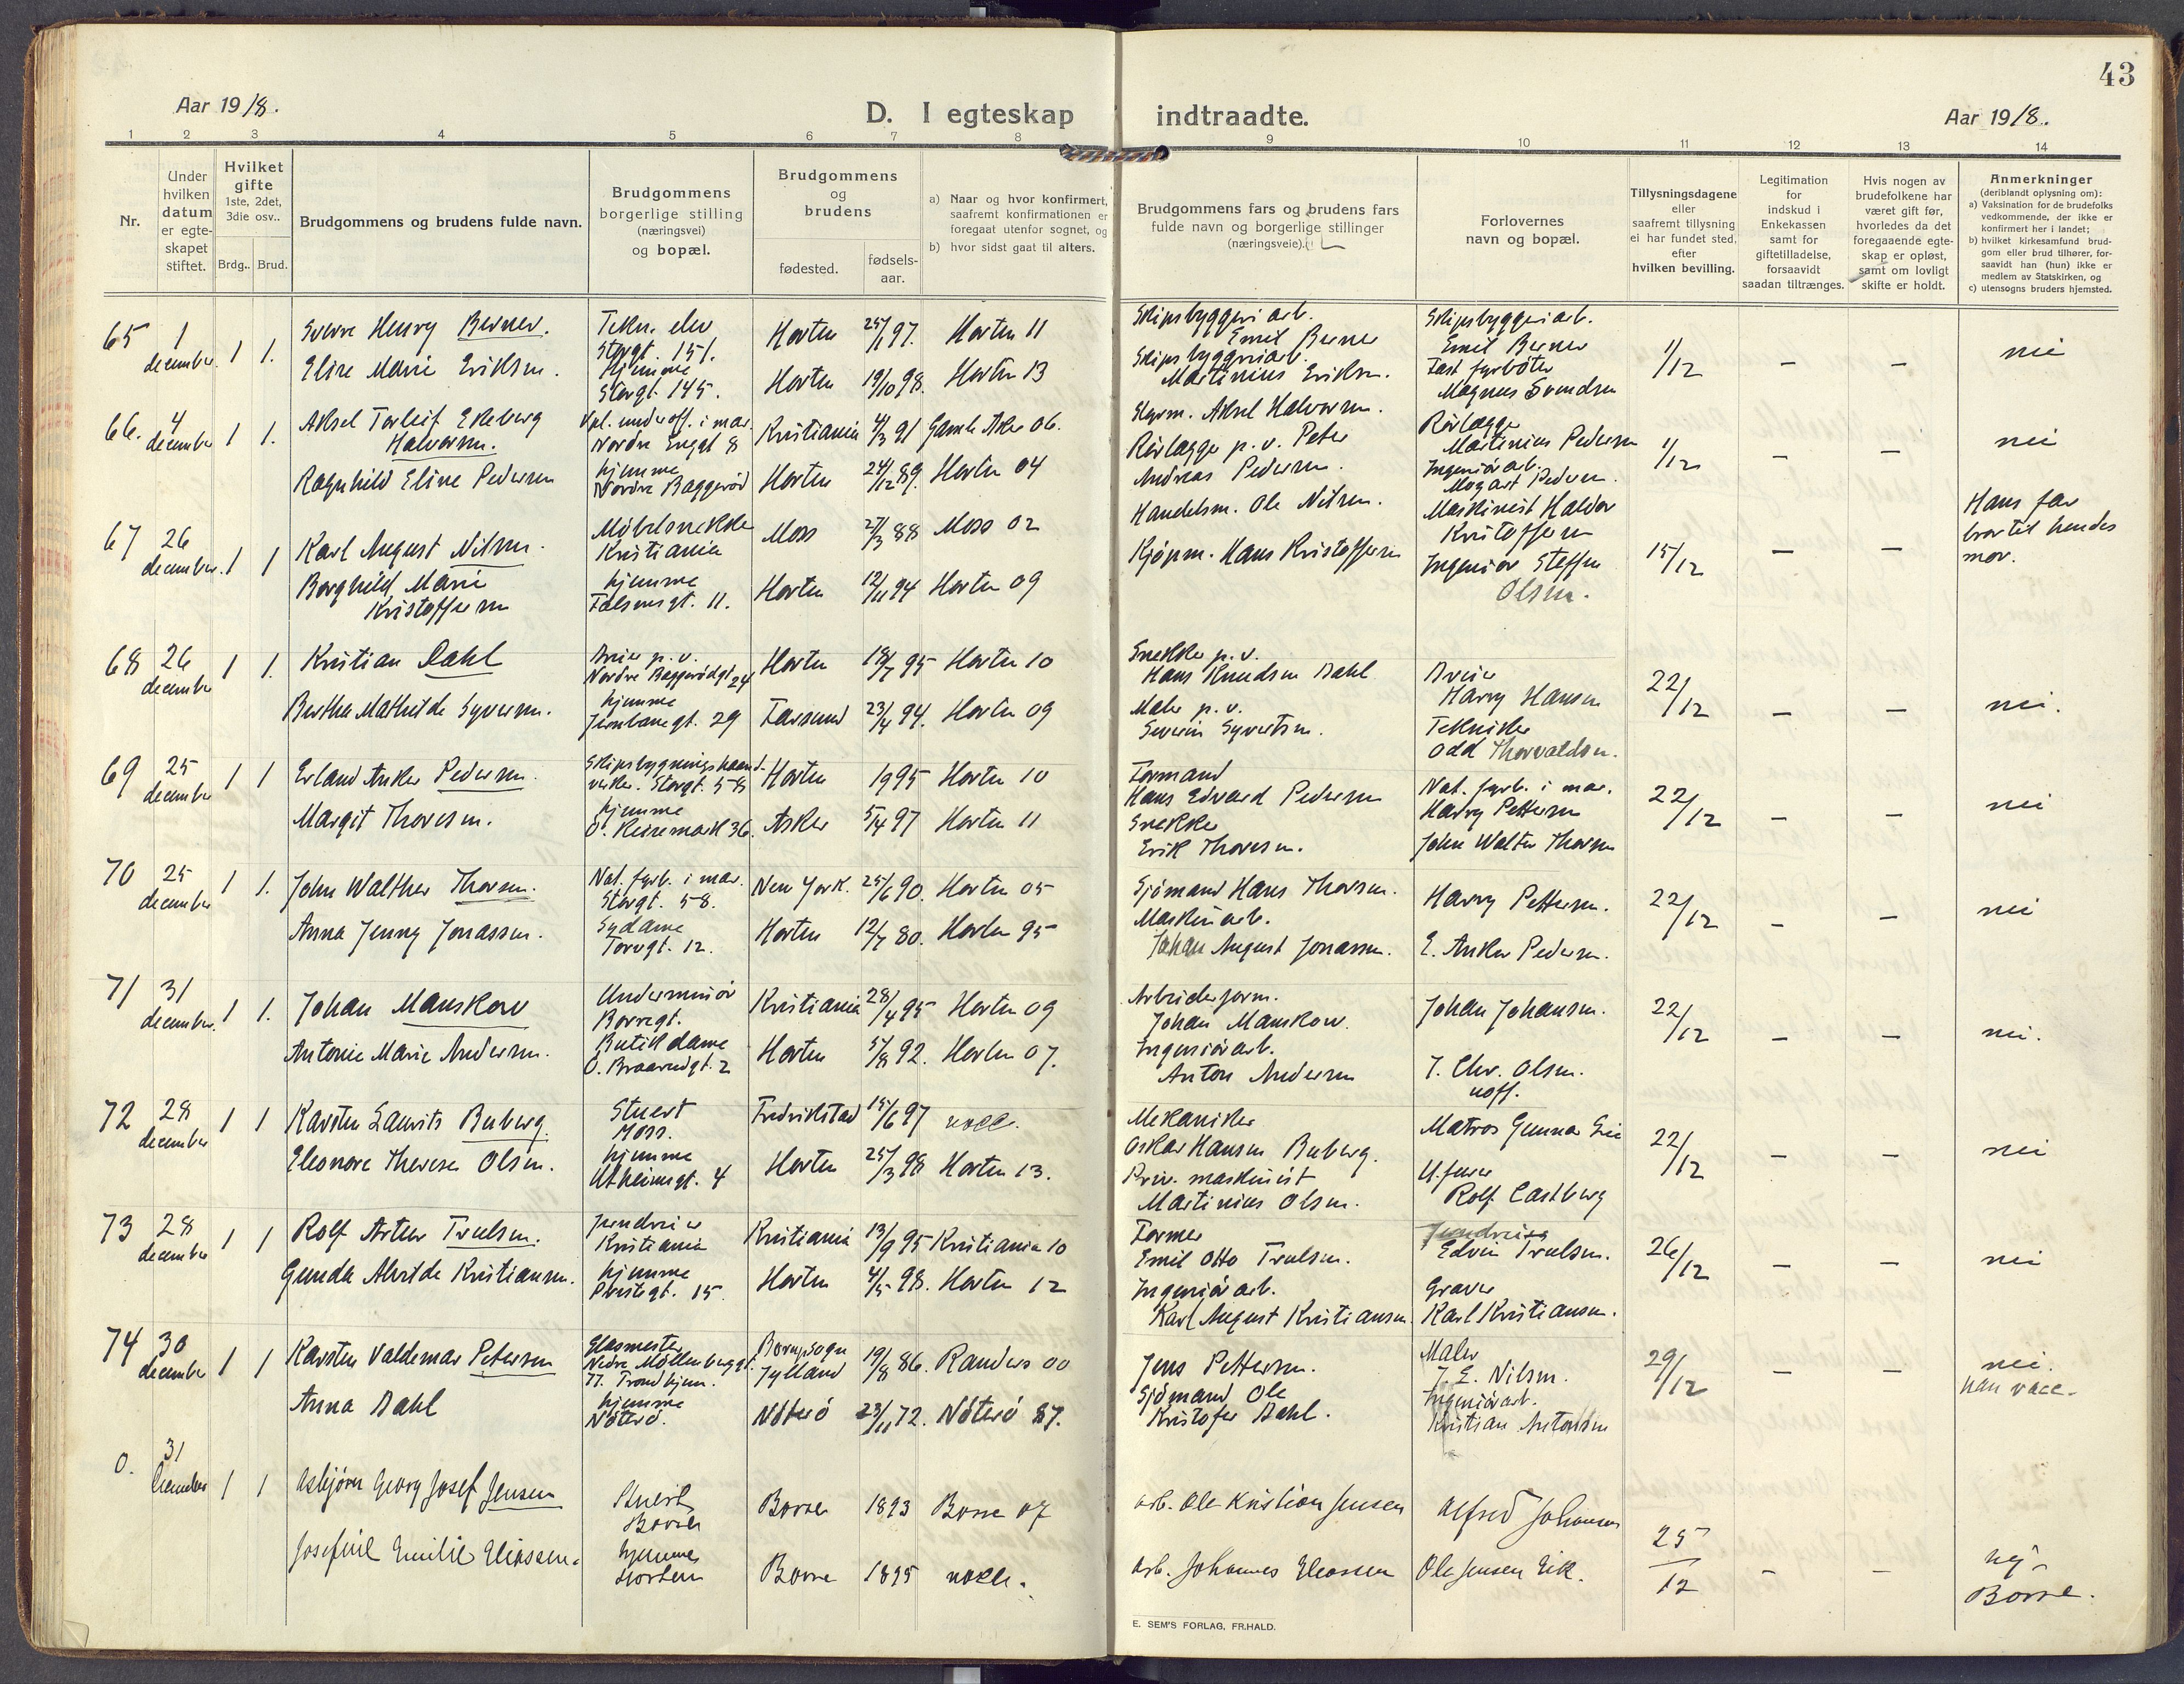 43
Aar 1918.
D. I egteskap indtraadte.
Aar 1918.
1 2 3 4 5 6 7 8 9 10 11 12 13 14
Nr.
Under hvilken datum er egteskapet stiftet.
Hvilket gifte 1ste, 2det, 3die osv..
Brdg.. Brud.
Brudgommens og brudens fulde navn.
Brudgommens borgerlige stilling (næringsvei) og bopæl.
Brudgommens og brudens
fødested.
fødsels-aar.
a) Naar og hvor konfirmert, saafremt konfirmationen er foregaat utenfor sognet, og
b) hvor sidst gaat til alters.
Brudgommens fars og brudens fars fulde navn og borgerlige stillinger (næringsveie).
Forlovernes navn og bopæl.
Tillysningsdagene eller saafremt tillysning ei har fundet sted, efter hvilken bevilling.
Legitimation for indskud i Enkekassen samt for giftetilladelse, forsaavidt saadan tiltrænges.
Hvis nogen av brudefolkene har været gift før, hvorledes da det foregaaende egteskap er opløst, samt om lovligt skifte er holdt.
Anmerkninger (deriblandt oplysning om):
a) Vaksination for de brudefolks vedkommende, der ikke er konfirmert her i landet;
b) hvilket kirkesamfund brudgom eller brud tilhører, forsaavidt han (hun) ikke er medlem av Statskirken, og
c) utensogns bruders hjemsted.
65 1 december 1 1. Sverre Henry Berner. Tekn. elev Storgt. 151. Horten 25/1 97. Horten 11 Skipsbyggeriarb. Emil Berner Skipsbyggeriarb. Emil Berner 1/12 – – nei
Elise Marie Eriksen. hjemme Storgt. 145. Horten 19/10 98. Horten 13 Skipsbyggeriarb. Martinius Eriksen. Fast fyrbøter Magnus Svendsen
66. 4 december 1 1. Aksel Torleif Ekeberg Halvorsen. Kpl. underoff. i mar. Nordre Enggt 8 Kristiania 4/3 91 Gamle Aker 06. Styrm. Aksel Halvorsen. Rørlægger Martinius Pedersen 1/12 – – nei
Ragnhild Eline Pedersen hjemme Nordre Baggerød Horten 24/12 89. Horten 04 Rørlægger p.v. Peter Andreas Pedersen. Ingeniørarb. Mogart Pedersen.
67 26 december. 1 1 Karl August Nilsen. Møbelsnekker Kristiania Moss 27/3 88 Moss 02 Handelsm. Ole Nilsen. Maskinist Haldor Kristoffersen 15/12 – – Hans far bror til hendes mor.
Borghild Marie Kristoffersen hjemme Falsensgt. 11. Horten 12/11 94 Horten 09 Kjøpm. Hans Kristoffersen Ingeniør Steffen Olsen.
68 26 december 1 1. Kristian Dahl Dreier p.v. Nordre Baggerødgt 24 Horten 18/7 95 Horten 10 Snekker p.v. Hans Knudsen Dahl Dreier Harry Hansen 22/12 – – nei.
Berthe Mathilde Syversen. hjemme Jernbanegt. 29 Farsund 23/4 94. Horten 09 Maler p.v. Severin Syvertsen. Tekniker Odd Thorvaldsen.
69 25 december 1 1 Erland Anker Pedersen. Skipsbygningshaandverker. Storgt. 58 Horten 1995 Horten 10 Formand Hans Edvard Pedersen Nat. fyrb. i mar. Harry Pettersen 22/12 – – nei
Margit Thoresen. hjemme Ö. Keisemark 36. Asker 5/4 97 Horten 11 Snekker Erik Thoresen. John Walter Thorsen
70 25 december 1 1. John Walther Thorsen. Nat. fyrb. i mar. Storgt. 58. New York. 25/6 90. Horten 05 Sjømand Hans Thorsen. Harry Pettersen. 22/12 – – nei
Anna Jenny Jonassen. Sydame Torvgt. 12. Horten 12/7 80. Horten 95 Maskinarb. Johan August Jonassen. E. Anker Pedersen.
71 31 december. 1 1. Johan Manskow Underminør Borregt. Kristiania 28/4 95 Horten 09 Arbeiderform. Johan Manskow. Johan Johansen. 22/12 – – nei.
Antonie Marie Andersen. Butikdame Ö. Braarudgt. 2 Horten 5/8 92. Horten 07. Ingeniørarb. Anton Andersen J. Chr. Olsen. uoff.
72 28 december 1 1 Karsten Laurits Buberg. Stuert Moss. Fredrikstad 15/6 97 Mekaniker Oskar Hansen Buberg. Matros Gunnar 22/12 – – nei
Eleonore Therese Olsen. hjemme Utheimsgt. 4 Horten 25/3 98 Horten 13. Priv. maskinist Martinius Olsen. Rolf Castberg
73 28 december 1 1 Rolf Artur Truelsen. Jerndreier Kristiania Kristiania 13/9 95 Kristiania 10 Former Emil Otto Truelsen. Jerndreier Edvin Truelsen. 26/12 – – nei
Gunda Alvilde Kristiansen. hjemme Prestegt. 15 Horten 4/5 98. Horten 12 Ingeniørarb. Karl August Kristiansen. Graver Karl Kristiansen.
74 30 december 1 1 Karsten Valdemar Petersen Glasmester Nedre Møllenberggt. 77. Trondhjem. Borup sogn Jylland 19/8 86. Randers 00 Jens Pettersen. Maler J. E. Nilsen. 29/12 – – nei. han vacc.
Anna Dahl hjemme Nøterø. Nøterø 23/11 72. Nøterø 87. Sjømand Ole Kristofer Dahl. Ingeniørarb. Kristian Antonsen
0. 31 December 1 1 Asbjørn Georg Josef Jensen Stuert Borre Borre 1893 Borre 07 arb. Ole Kristian Jensen Alfred Johansen 25/12 – – nej. Borre.
Josefine Emilie Eliassen. hjemme Horten Borre 1895 arb. Johannes Eliassen Ole Jensen Eik.
E. SEM'S FORLAG, FR.HALD.